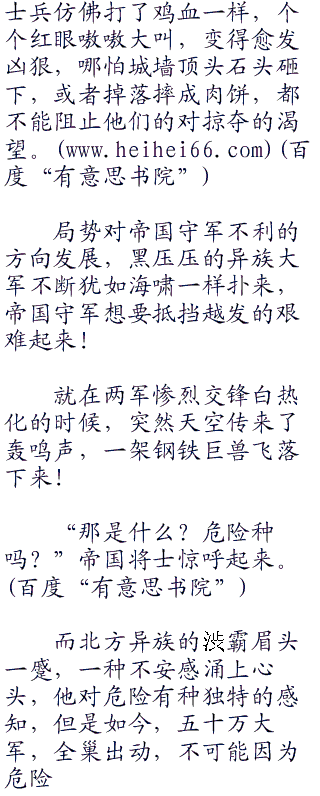 士兵仿佛打了鸡血一样，个
个红眼嗷嗷大叫，变得愈发
凶狠，哪怕城墙顶头石头砸
下，或者掉落摔成肉饼，都
不能阻止他们的对掠夺的渴
望。(www.heihei66.com)(百
度“有意思书院”)
局势对帝国守军不利的
方向发展，黑压压的异族大
军不断犹如海啸一样扑来，
帝国守军想要抵挡越发的艰
难起来！
就在两军惨烈交锋白热
化的时候，突然天空传来了
轰鸣声，一架钢铁巨兽飞落
下来！
“那是什么？危险种
吗？”帝国将士惊呼起来。
(百度“有意思书院”)
而北方异族的渋霸眉头
一蹙，一种不安感涌上心
头，他对危险有种独特的感
知，但是如今，五十万大
军，全巢出动，不可能因为
危险